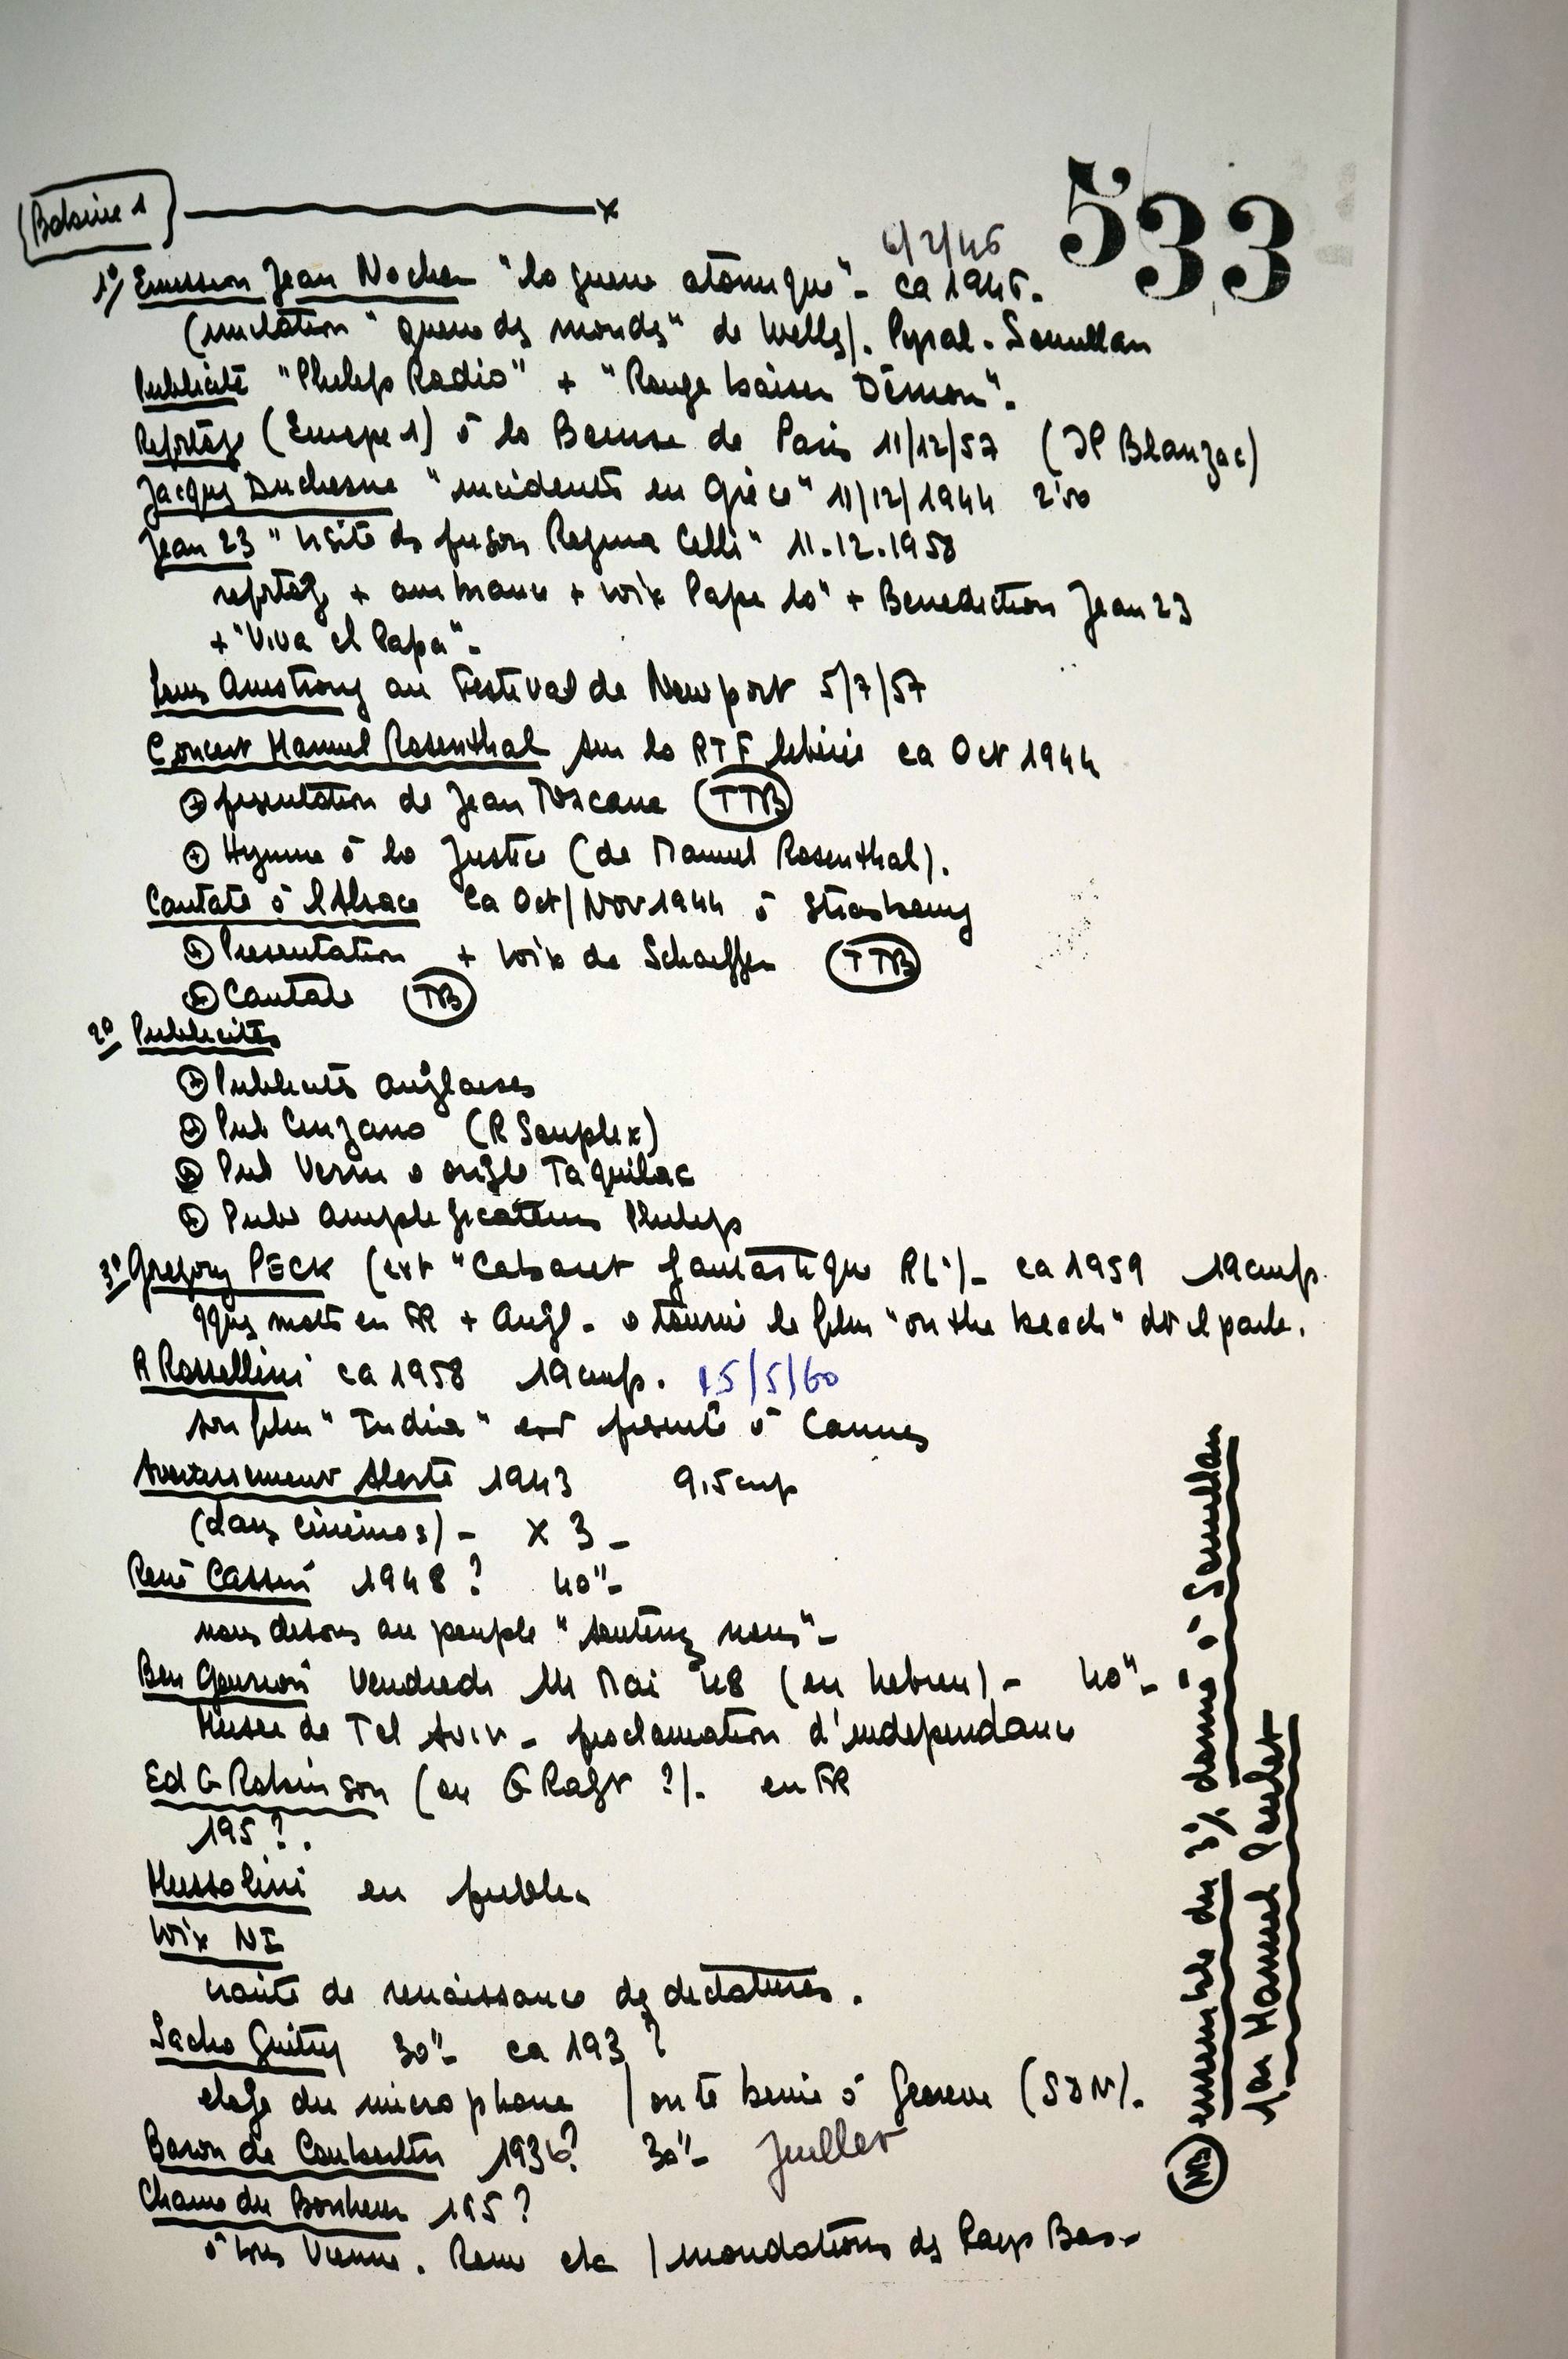 533
Bobine 1
6/2/46
1°/ Emission Jean Nocher "la guerre atomique" - ca 1946.
(imitation "guerre des mondes" de Wells). Pyral - Somullan
Publicité "Philips Radio" + "Rouge baiser Démon".
Reportage (Europe 1) à la Bourse de Paris 11/12/57 (JP Blanzac)
Jacques Duchesne "incidents en Grèce" 11/12/1944 2'50
Jean 23 "visite ds prison Regina Celli" 11.12.1958
reportage + ambiance + voix Pape 10" + Benediction Jean 23
+ "Viva el Papa" -
Louis Amstrong au Festival de Newport 5/7/57
Concert Manuel Rosenthal sur la RTF libérée ca Oct 1944
+ presentation de Jean Toscane (TTB)
+ Hymne à la Justice (de Manuel Rosenthal).
Cantate à l'Alsace ca Oct/Nov 1944 à Strasbourg
+ Presentation + voix de Schaeffer (TTB)
+ Cantate (TB)
2° Publicités
+ Publicités anglaises
+ Pub Cinzano (R Souplex)
+ Pub Vernis à ongle Taquilac
+ Pubs Amplificateurs Philips
3° Gregory PECK (ext "Cabaret fantastique RL") - ca 1959 19cmps.
qques mots en FR + Angl - a tourné le film "on the beach" dt il parle.
R Rossellini ca 1958 19cmps. 15/5/60
son film "India" est présenté à Cannes
Avertissement Alerte 1943 9,5cmps
(dans cinémas) - x 3 -
René Cassin 1948? 40" -
nous disons au peuple "soutenez nous" -
Ben Gourion Vendredi 14 Mai 48 (en hebreu) - 40" -
Musée de Tel Aviv - proclamation d'independance
Ed G Robinson (ou G Raft ?). en FR
195?.
Mussolini en public
Voix NI
crainte de renaissance des dictatures.
Sacha Guitry 30" - ca 193?
eloge du microphone / on te benie à Geneve (SDN).
Baron de Coubertin 1936? 30" - Juillet
Chaine du Bonheur 195?
Vienne. Rome etc / inondations ds Pays Bas -
NB ensemble du 3°/ donné à Somullan
par Manuel Poulet